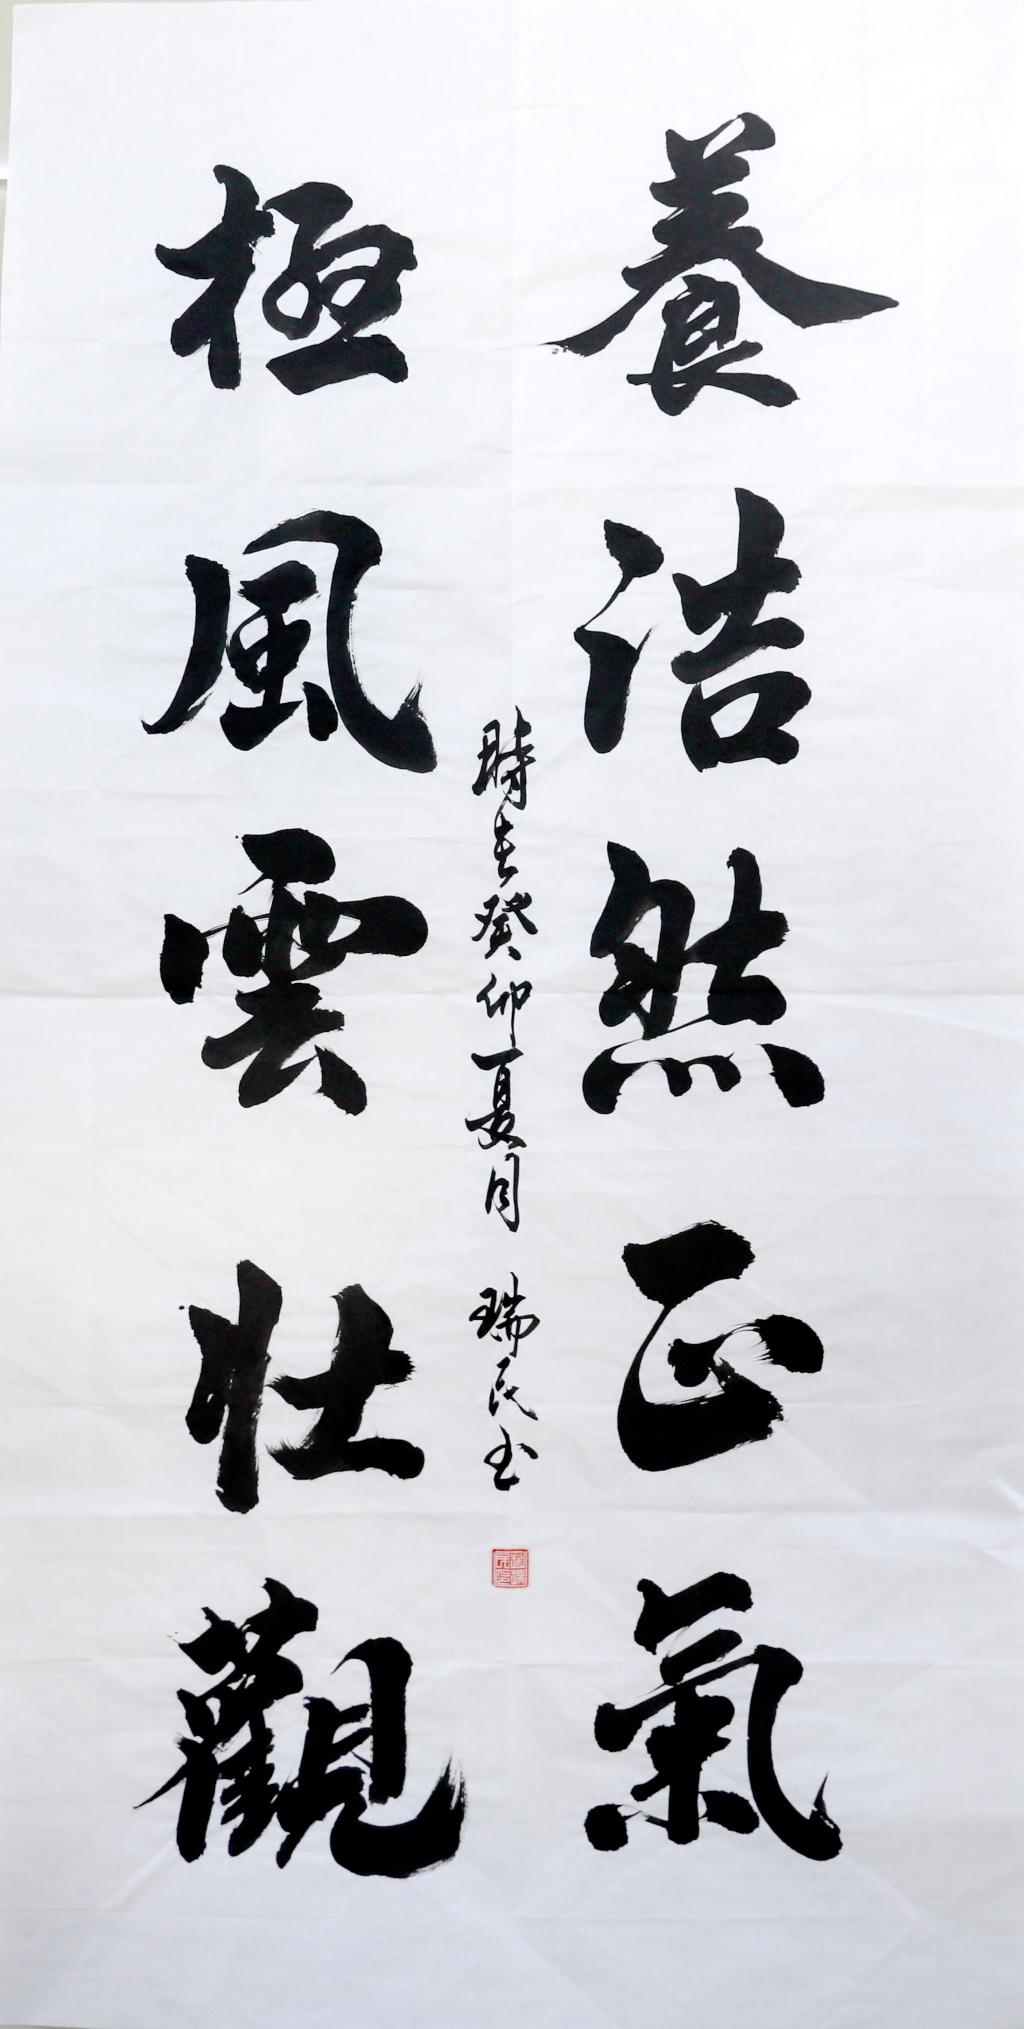 養浩然正氣
極風雲壯觀
時在癸卯夏月 瑞民书